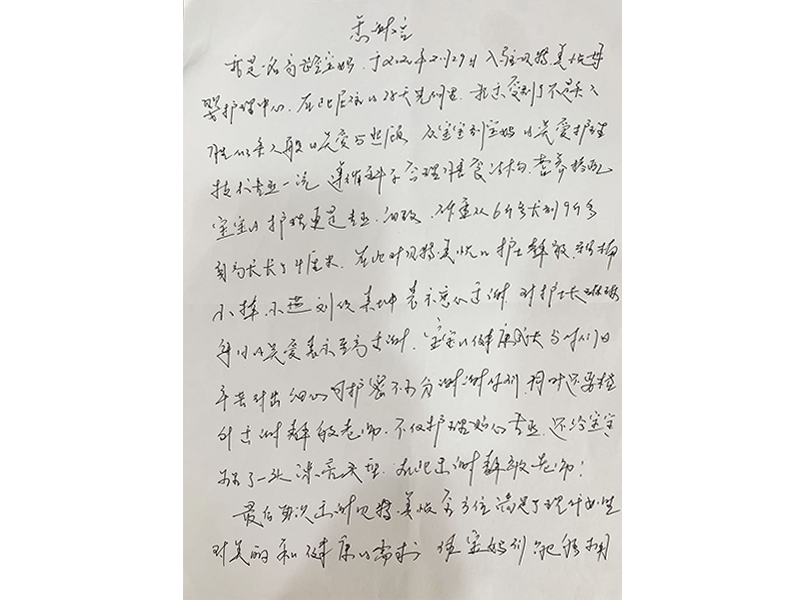 感谢信
我是一名高龄宝妈，于2022年2月29日入驻贝特美优母
婴护理中心，在此居住的28天里，我享受到了不是亲人
胜似亲人般的关爱与照顾，及宝宝到宝妈的关爱护理
技术专业一流，遵循科学合理膳食结构，营养搭配
宝宝的护理更是专业、细致，体重从6斤多长到9斤多
身高长长了4厘米，在此对贝特美优的护士静敏、
小樟、小燕、刘俊表示衷心感谢，对护士长
每日的关爱表示至高感谢，宝宝的健康成长与你们的
辛苦付出细心呵护密不可分谢谢你们，同时还要格
外感谢静敏老师，不仅护理贴心专业，还给宝宝
拍了一头漂亮头型，在此感谢静敏老师！
最后再次感谢贝特美优全方位满足了现代女性
对美丽和健康的需求，使宝妈们能够拥